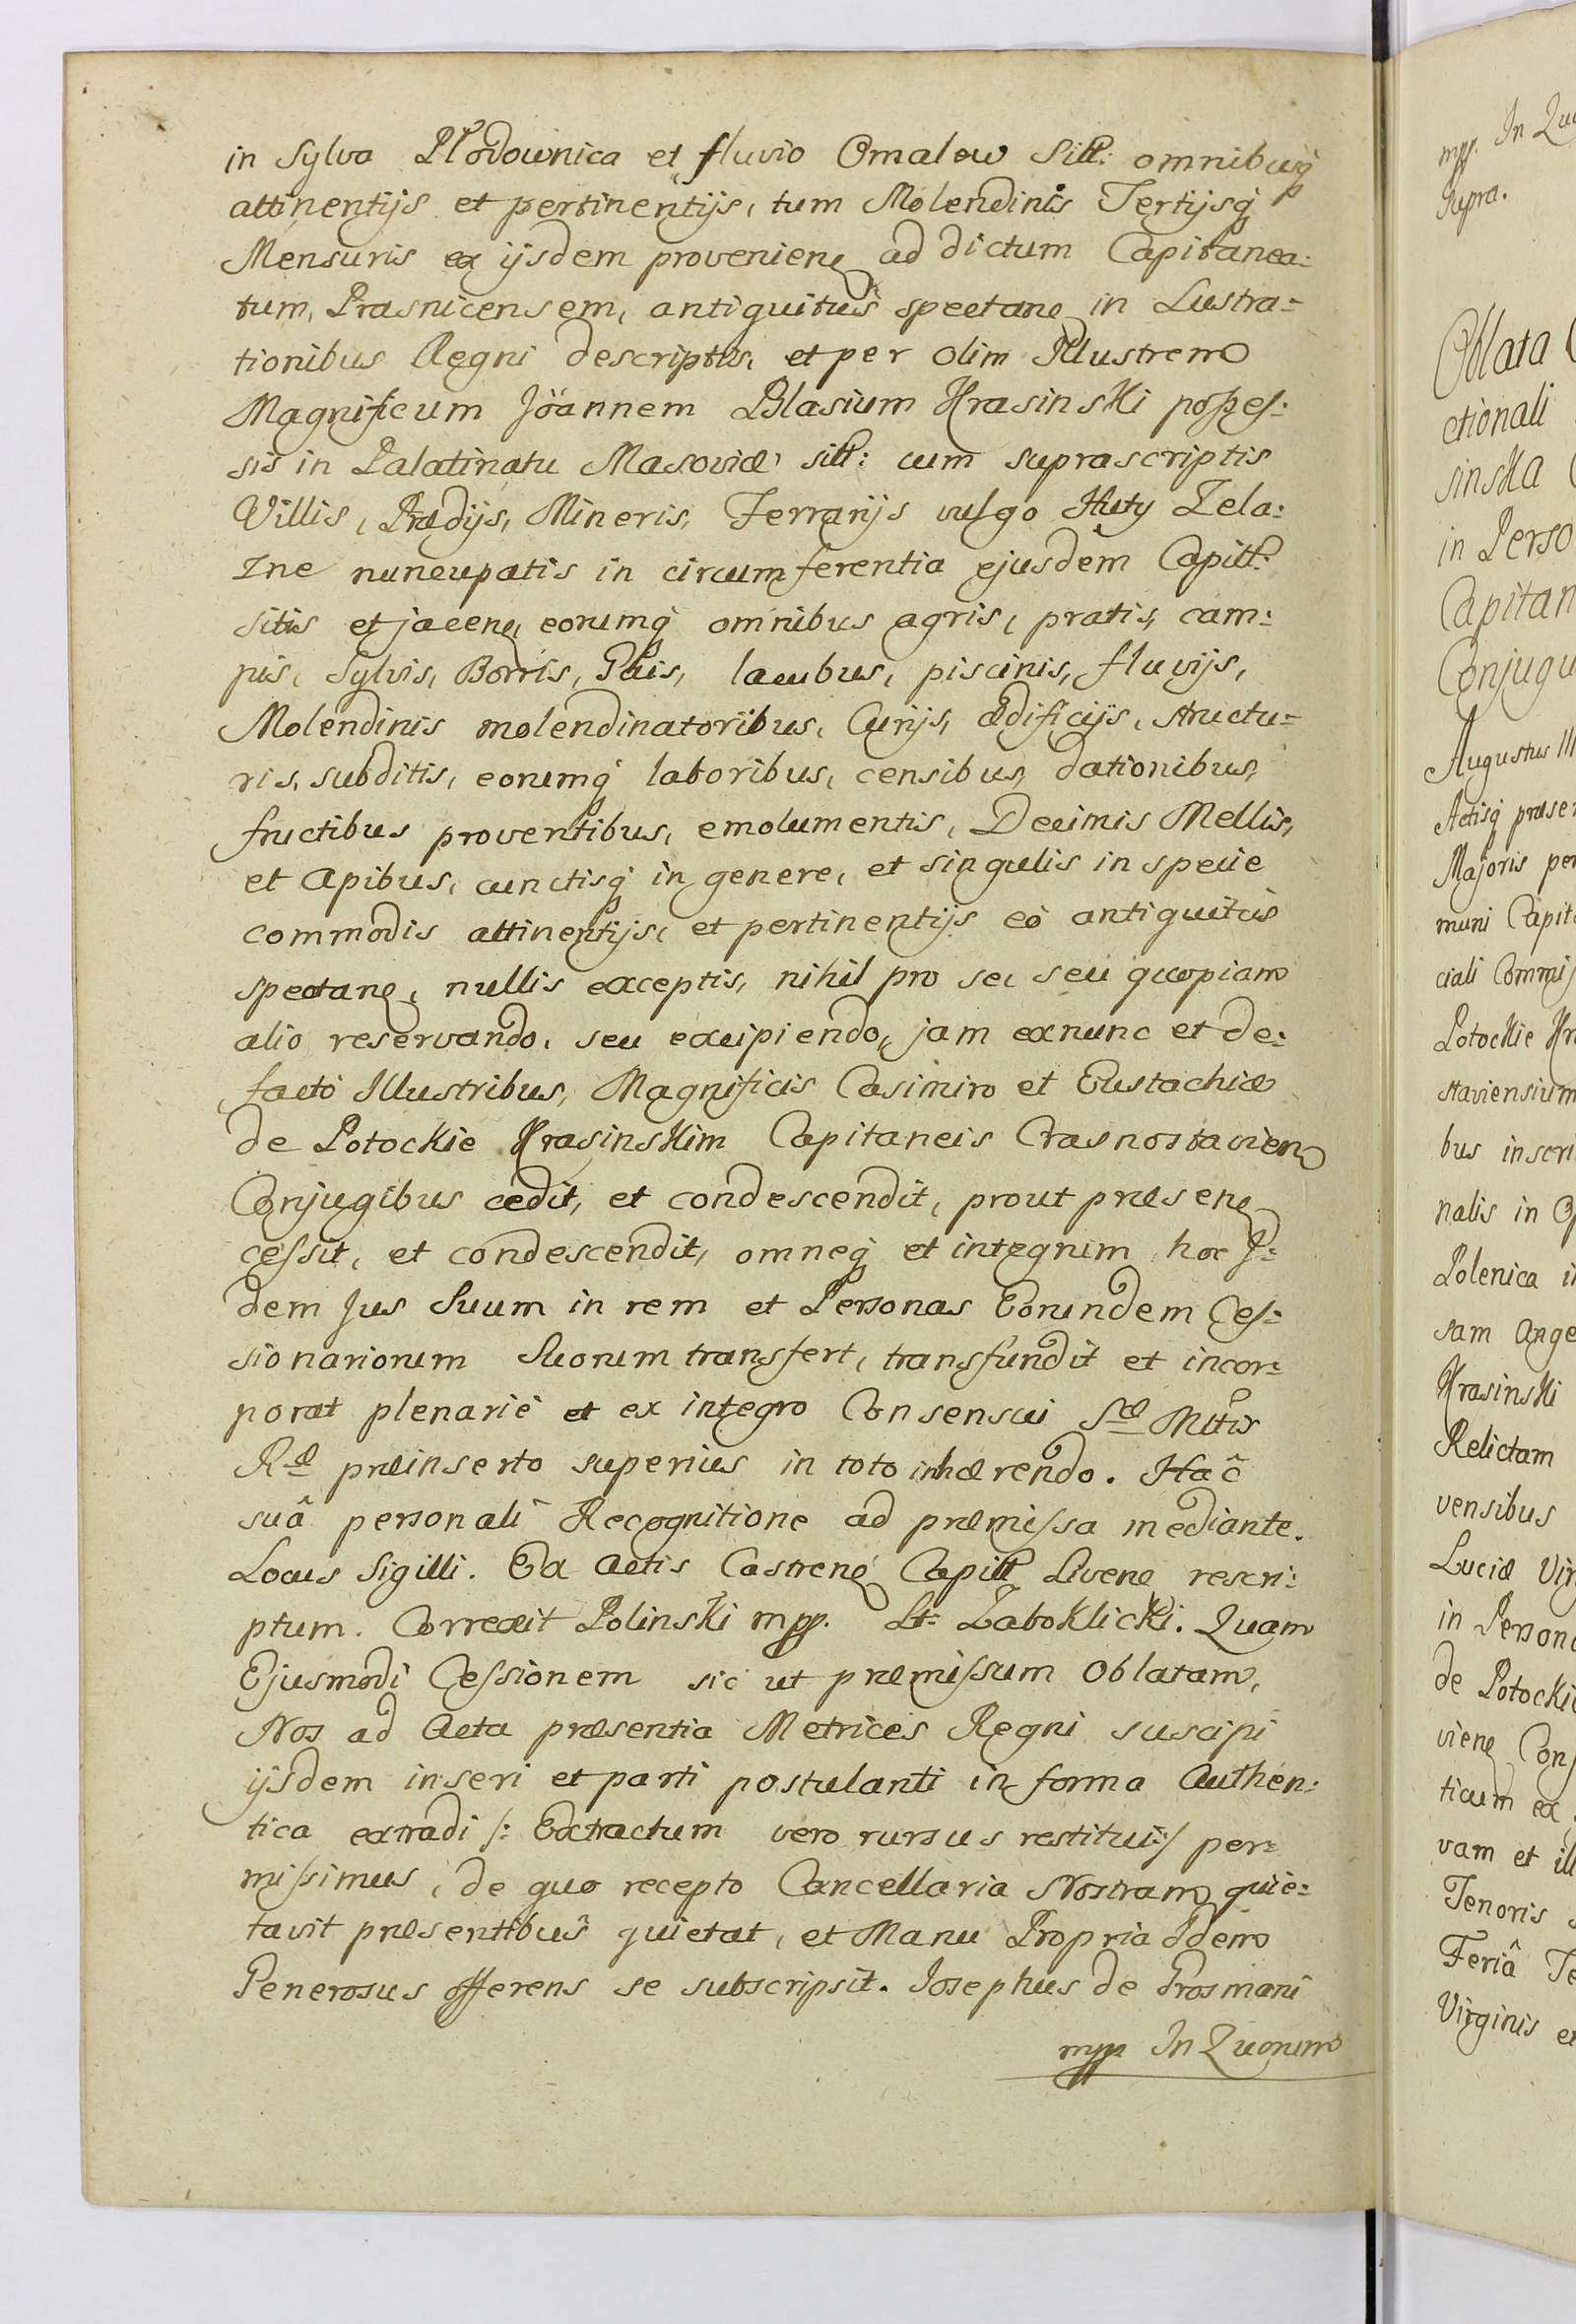 in Sylva Płodownica et fluvio Omalew Sitt: omnibusq
attinentijs et pertinentijs, tum Molendinis Tertijsq
Mensuris ex ijsdem provenien ad dictum Capitanea:
tum, Prasnicensem, antiquitus spectan in Lustra=
tionibus Regni descriptis, et per olim Illustrem
Magnificum Joannem Blasium Krasinski posses:
sis in Palatinatu Masoviæ sitt: cum suprascriptis
Villis, Prædijs, Mineris, Ferrarijs vulgo Huty Zela:
zne nuncupatis in circumferentia ejusdem Capitt:
sitis et jacen, eorumq omnibus agris, pratis, cam:
pis, Sylvis, Borris, Gais, lacubus, piscinis, fluvijs,
Molendinis molendinatoribus, Curijs, ædificijs, structu=
ris, subditis, eorumq laboribus, censibus, dationibus,
fructibus proventibus, emolumentis, Decimis Mellis,
et Apibus, cunctisq in genere, et singulis in specie
commodis attinentijs, et pertinentijs eò antiquitùs
spectan, nullis exceptis, nihil pro se, seu quopiam
alio reservando, seu excipiendo, jam exnunc et de:
facto Illustribus, Magnificis Casimiro et Eustachiæ
de Potockie Krasinskim Capitaneis Crasnostavien
Conjugibus cedit, et condescendit, prout præsen
cessit, et condescendit, omneq et integrum hoc J:
dem Jus Suum in rem et Personas Eorundem Ces:
sionariorum Suorum transfert, transfundit et incor:
porat plenariè et ex integro Consensui Sæ Mttis
Ræ præinserto superius in toto inhærendo. Hac
suâ personali Recognitione ad præmissa mediante.
Locus Sigilli. Ex Actis Castren Capitt Liven rescri:
ptum. Correxit Polinski mpp. Lt: Zaboklicki. Quam
Ejusmodi Cessionem sic ut præmissum Oblatam,
Nos ad Acta præsentia Metrices Regni suscipi
ijsdem inseri et parti postulanti in forma Authen:
tica extradi /: Extractum vero rursus restitui :/ per:
missimus, de quo recepto Cancellaria Nostram quie:
tavit præsentibus quietat, et Manu Propria Idem
Generosus offerens se subscripsit. Josephus de Grosmani
mpp In Quorum
mpp. In Qu
supra.
Oblata
ctionali
sinska
in Perso
Capitan
Conjugu
Augustus III
Actisq præsen
Majoris per
muni Capit
ciali Commis
Potockie Kr
staviensium
bus inscri
nalis in
Polenica i
sam Ange
Krasinski
Relictam
vensibus
Luciæ Vir
in Person
de Potocki
vien Conj
ticum ex
vam et ill
Tenoris
Feriâ Te
Virginis